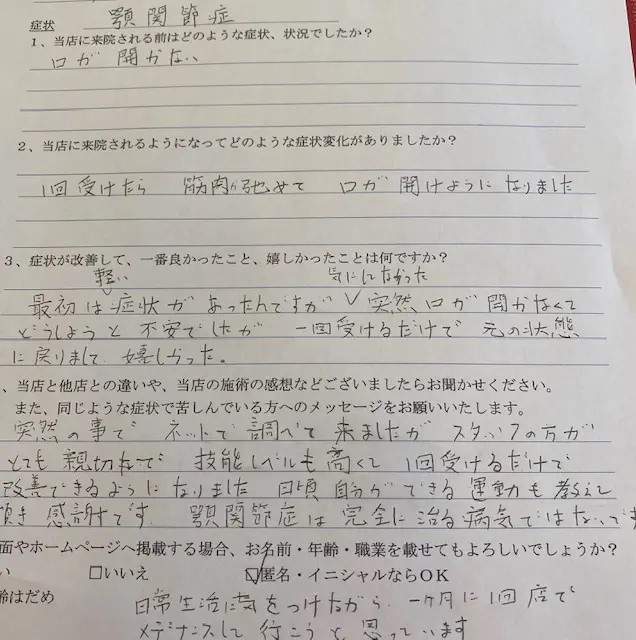 症状 顎関節症
1、当店に来院される前はどのような症状、状況でしたか？
口が開かない
2、当店に来院されるようになってどのような症状変化がありましたか？
1回受けたら 筋肉が弛めて 口が開けようになりました
3、症状が改善して、一番良かったこと、嬉しかったことは何ですか？
軽い 気にしてなかった
最初は症状があったんですが 突然口が開かなくて
どうしようと不安でしたが 一回受けるだけで 元の状態
に戻りまして 嬉しかった。
、当店と他店との違いや、当店の施術の感想などございましたらお聞かせください。
また、同じような症状で苦しんでいる方へのメッセージをお願いいたします。
突然の事で ネットで調べて来ましたが スタッフの方が
とても親切なで 技能レベルも高くて 1回受けるだけで
改善できるようになりました 日頃自分ができる運動も教えて
頂き感謝です 顎関節症は完全に治る病気ではないです
面やホームページへ掲載する場合、お名前・年齢・職業を載せてもよろしいでしょうか？
い □いいえ ☑匿名・イニシャルならOK
齢はだめ
日常生活に気をつけながら 一ヶ月に1回店で
メテナンスして行こうと思っています